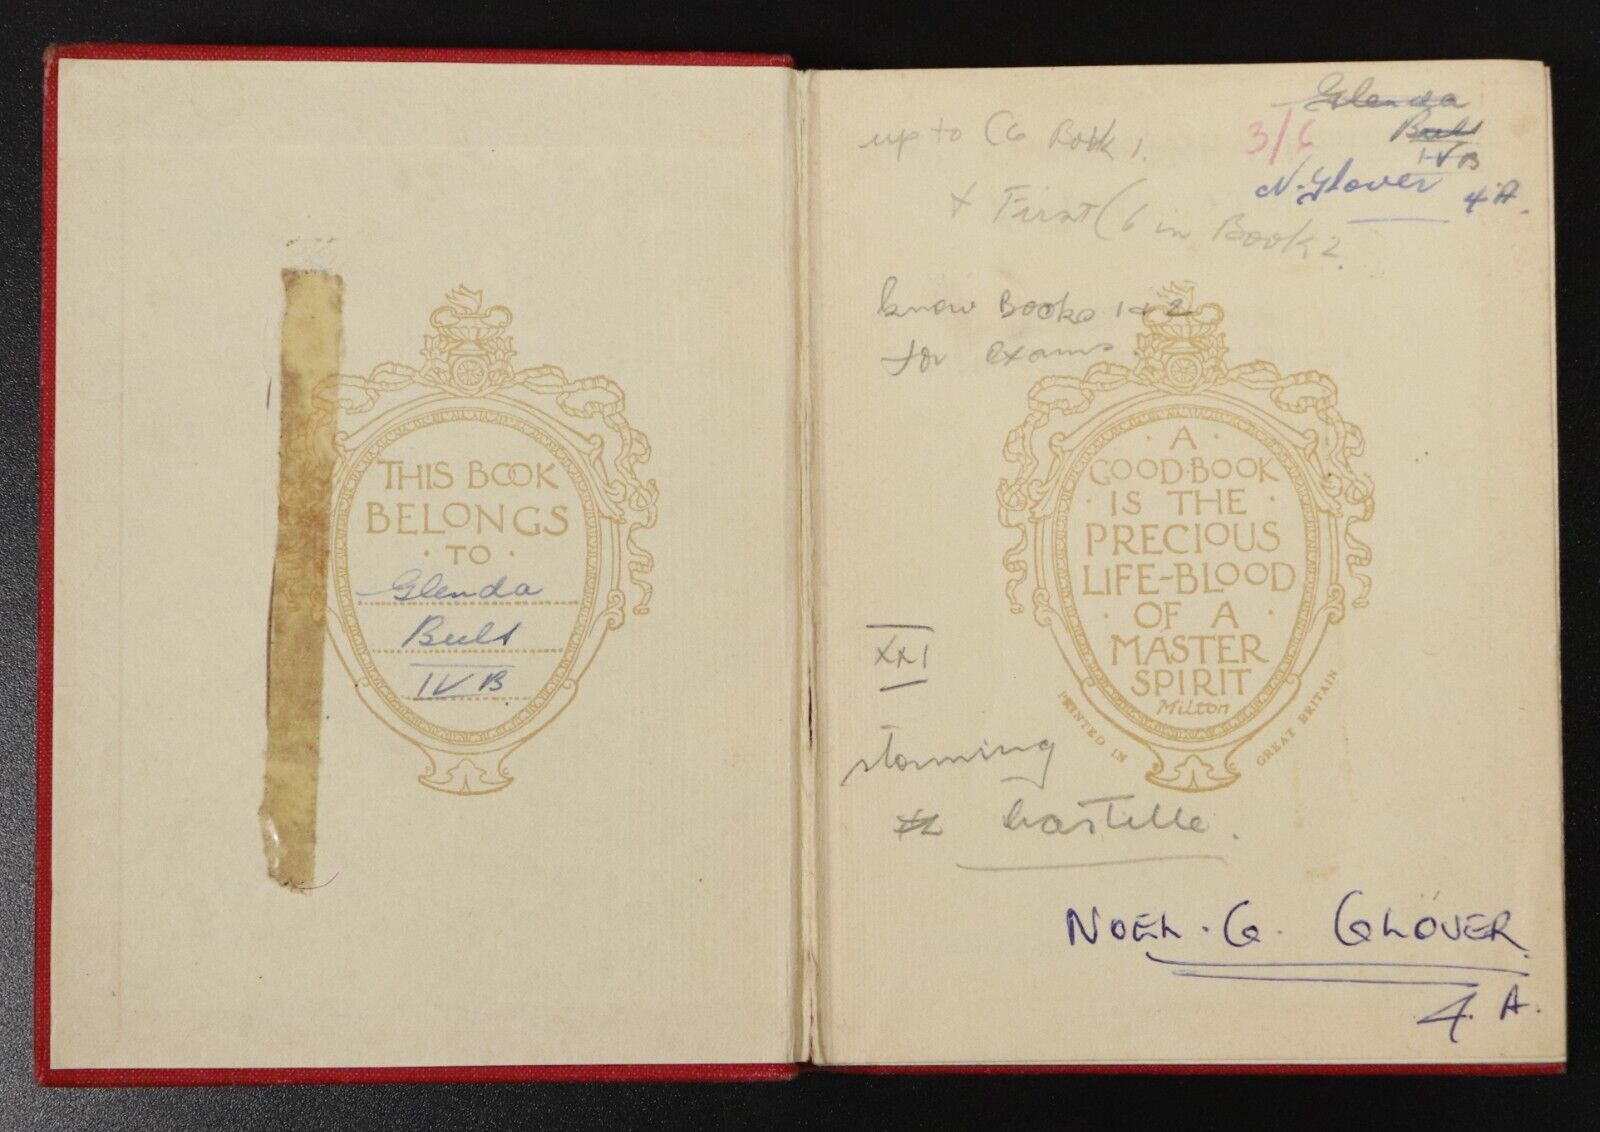 THIS BOOK
BELONGS
· TO ·
Glenda
IVB
Glenda
IVB
3/6
N. Glover 4A.
up to C6 Book 1.
+ First C6 in Book 2.
know Books 1 & 2
for exams
· A ·
GOOD·BOOK
· IS THE ·
PRECIOUS
LIFE-BLOOD
· OF A ·
MASTER
SPIRIT
Milton
PRINTED IN GREAT BRITAIN
XXI
storming
bastille.
NOEL. G. GLOVER.
4. A.